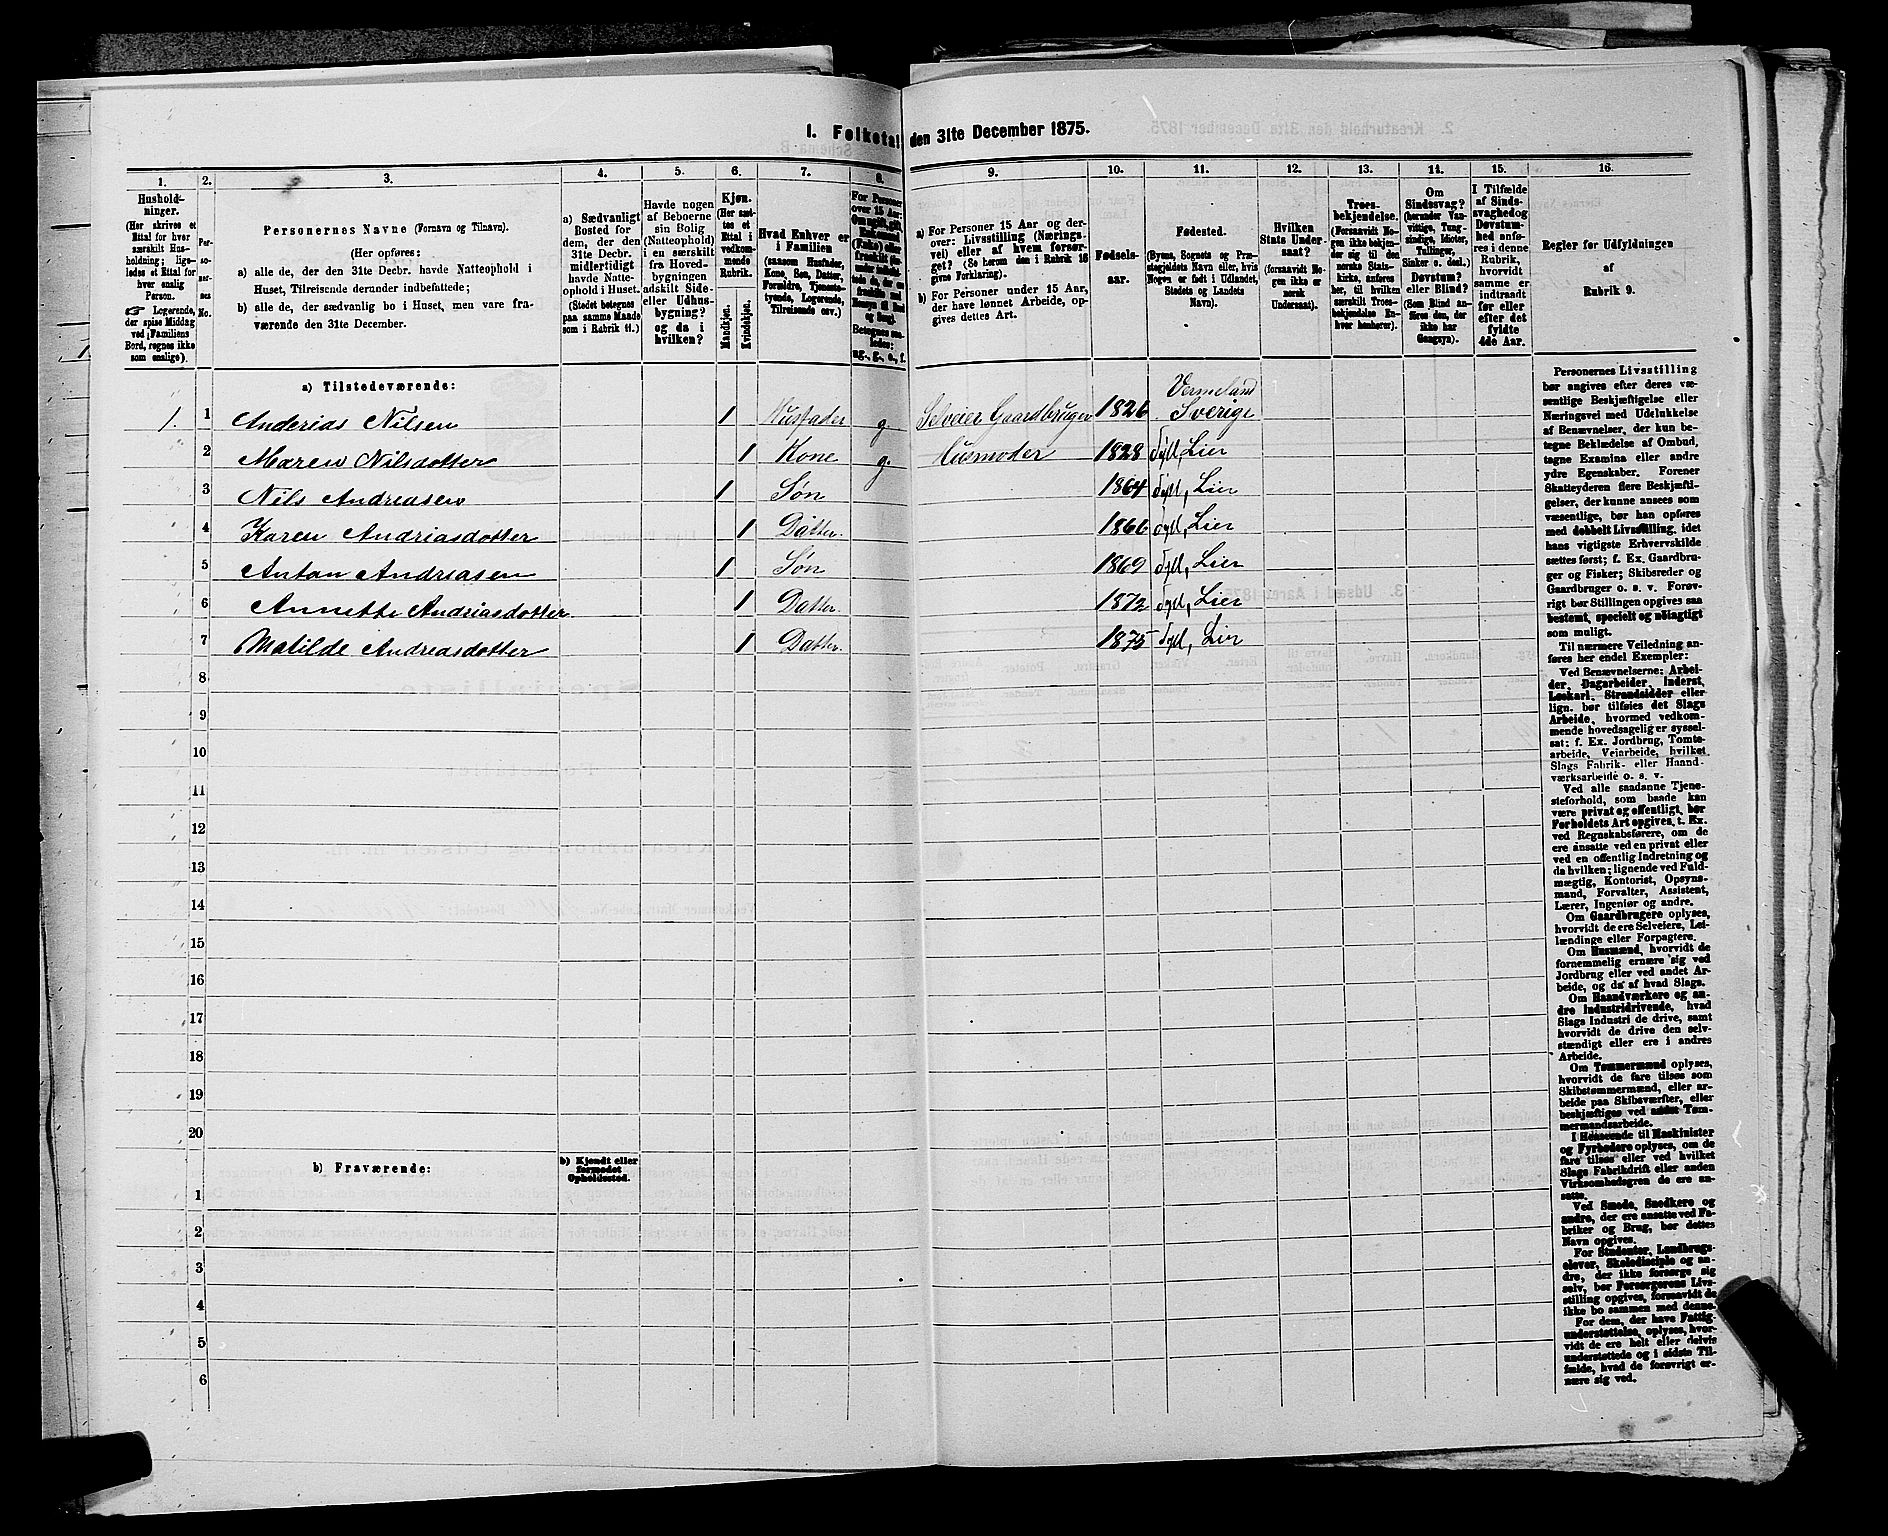 I. Folketal den 31te December 1875.
1. 2. 3. 4. 5. 6. 7. 8. 9. 10. 11. 12. 13. 14. 15. 16.
Husholdninger.
(Her skrives et Ettal for hver særskilt Husholdning; ligeledes et Ettal for hver enslig Person.
☞ Logerende, der spise Middag ved Familiens Bord, regnes ikke som enslige).
Personernes No.
Personernes Navne (Fornavn og Tilnavn).
(Her opføres:
a) alle de, der den 31te Decbr. havde Natteophold i Huset, Tilreisende derunder indbefattede;
b) alle de, der sædvanlig bo i Huset, men vare fraværende den 31te December.
a) Sædvanligt Bosted for dem, der den 31te Decbr. midlertidigt havde Natteophold i Huset.
(Stedet betegnes paa samme Maade som i Rubrik 11.)
Havde nogen af Beboerne sin Bolig (Natteophold) i en særskilt fra Hovedbygningen adskilt Side- eller Udhusbygning? og da i hvilken?
Kjøn.
(Her sættes et Ettal i vedkommende Rubrik.
Mandkjøn.
Kvindekjøn.
Hvad Enhver er i Familien
(saasom Husfader, Kone, Søn, Datter, Forældre, Tjenestetyende, Logerende, Tilreisende osv.)
For Personer over 15 Aar:
Betegnes saaledes: ug., g., e., f.
a) For Personer 15 Aar og derover: Livsstilling (Næringsvei) eller af hvem forsørget? (Se herom den i Rubrik 16 givne Forklaring).
b) For Personer under 15 Aar, der have lønnet Arbeide, opgives dettes Art.
Fødselsaar.
Fødested.
(Byens, Sognets og Præstegjeldets Navn eller, hvis Nogen er født i Udlandet, Stedets og Landets Navn).
Hvilken Stats Undersaat?
(forsaavidt Nogen ikke er norsk Undersaat).
Troesbekjendelse.
(Forsaavidt Nogen ikke bekjender sig til den norske Statskirke, anføres her, til hvilken særskilt Troesbekjendelse Enhver henhører).
Om Sindssvag?
(herunder Vanvittige, Tungsindige, Idioter, Tullinger, Sinker o. desl.)
Døvstum? eller Blind?
(Som Blind anføres den, der ikke har Gangsyn).
I Tilfælde af Sindssvaghed og Døvstumhed anføres i denne Rubrik, hvorvidt samme er indtraadt før eller efter det fyldte 4de Aar.
Regler før Udfyldningen af Rubrik 9.
a) Tilstedeværende:
1. 1 Anderias Nilsen 1 Husfader g. Selveier Gaardbruger 1826 Vermeland Sverige
2 Maren Nilsdotter 1 Kone g. Husmoder 1828 Lier
3 Nils Andreasen 1 Søn 1864 Lier
4 Karen Andriasdotter 1 Datter. 1866 Lier
5 Anton Andreasen 1 Søn 1869 Lier
6 Annette Andriasdotter 1 Datter. 1872 Lier
7 Matilde Andreasdotter 1 Datter. 1875 Lier
8
9
10
11
12
13
14
15
16
17
18
19
20
b) Fraværende:
b) Kjendt eller formodet Opholdssted.
1
2
3
4
5
6
Personernes Livsstilling bør angives efter deres væsentlige Beskjæftigelse eller Næringsvei med Udelukkelse af Benævnelser, der kun betegne Beklædelse af Ombud, tagne Examina eller andre ydre Egenskaber. Forener Skatteyderen flere Beskjæftigelser, der kunne ansees som væsentlige, bør han opføres med dobbelt Livsstilling, idet hans vigtigste Erhvervskilde sættes først; f. Ex. Gaardbruger og Fisker; Skibsreder og Gaardbruger o. s. v. Forøvrigt bør Stillingen opgives saa bestemt, specielt og nøiagtigt som muligt.
Til nærmere Veiledning anføres her endel Exempler:
Ved Benævnelserne: Arbeider, Dagarbeider, Inderst, Løskarl, Strandsidder eller lign. bør tilføies det Slags Arbeide, hvormed vedkommende hovedsagelig er sysselsat; f. Ex. Jordbrug, Tomtearbeide, Veiarbeide, hvilket Slags Fabrik- eller Haandværksarbeide o. s. v.
Ved alle saadanne Tjenesteforhold, som baade kan være privat og offentligt, bør Forholdets Art opgives, t. Ex. ved Regnskabsførere, om de ere ansatte ved en privat eller ved en offentlig Indretning og da hvilken; lignende ved Fuldmægtig, Kontorist, Opsynsmand, Forvalter, Assistent, Lærer, Ingeniør og andre.
Om Gaardbrugere oplyses, hvorvidt de ere Selveiere, Leilændinge eller Forpagtere.
Om Husmænd, hvorvidt de fornemmelig ernære sig ved Jordbrug eller ved andet Arbeide, og da af hvad Slags.
Om Haandværkere og andre Industridrivende, hvad Slags Industri de drive, samt hvorvidt de drive den selvstændigt eller ere i andres Arbeide.
Om Tømmermænd oplyses, hvorvidt de fare tilsøs som Skibstømmermænd, eller arbeide paa Skibsværfter, eller beskjæftiges ved andet Tømmermandsarbeide.
I Henseende til Maskinister og Fyrbødere oplyses, om de fare tilsøs eller ved hvilket Slags Fabrikdrift eller anden Virksomhedsgren de ere ansatte.
Ved Smede, Snedkere og andre, der ere ansatte ved Fabriker og Brug, bør dettes Navn opgives.
For Studenter, Landbrugselever, Skoledisciple og andre, der ikke forsørge sig selv, bør Forsørgerens Livsstilling opgives, forsaavidt de ikke bo sammen med denne.
For dem, der have Fattigunderstøttelse, oplyses, hvorvidt de ere helt eller delvis understøttede og i sidste Tilfælde, hvad de forøvrigt ernære sig ved.